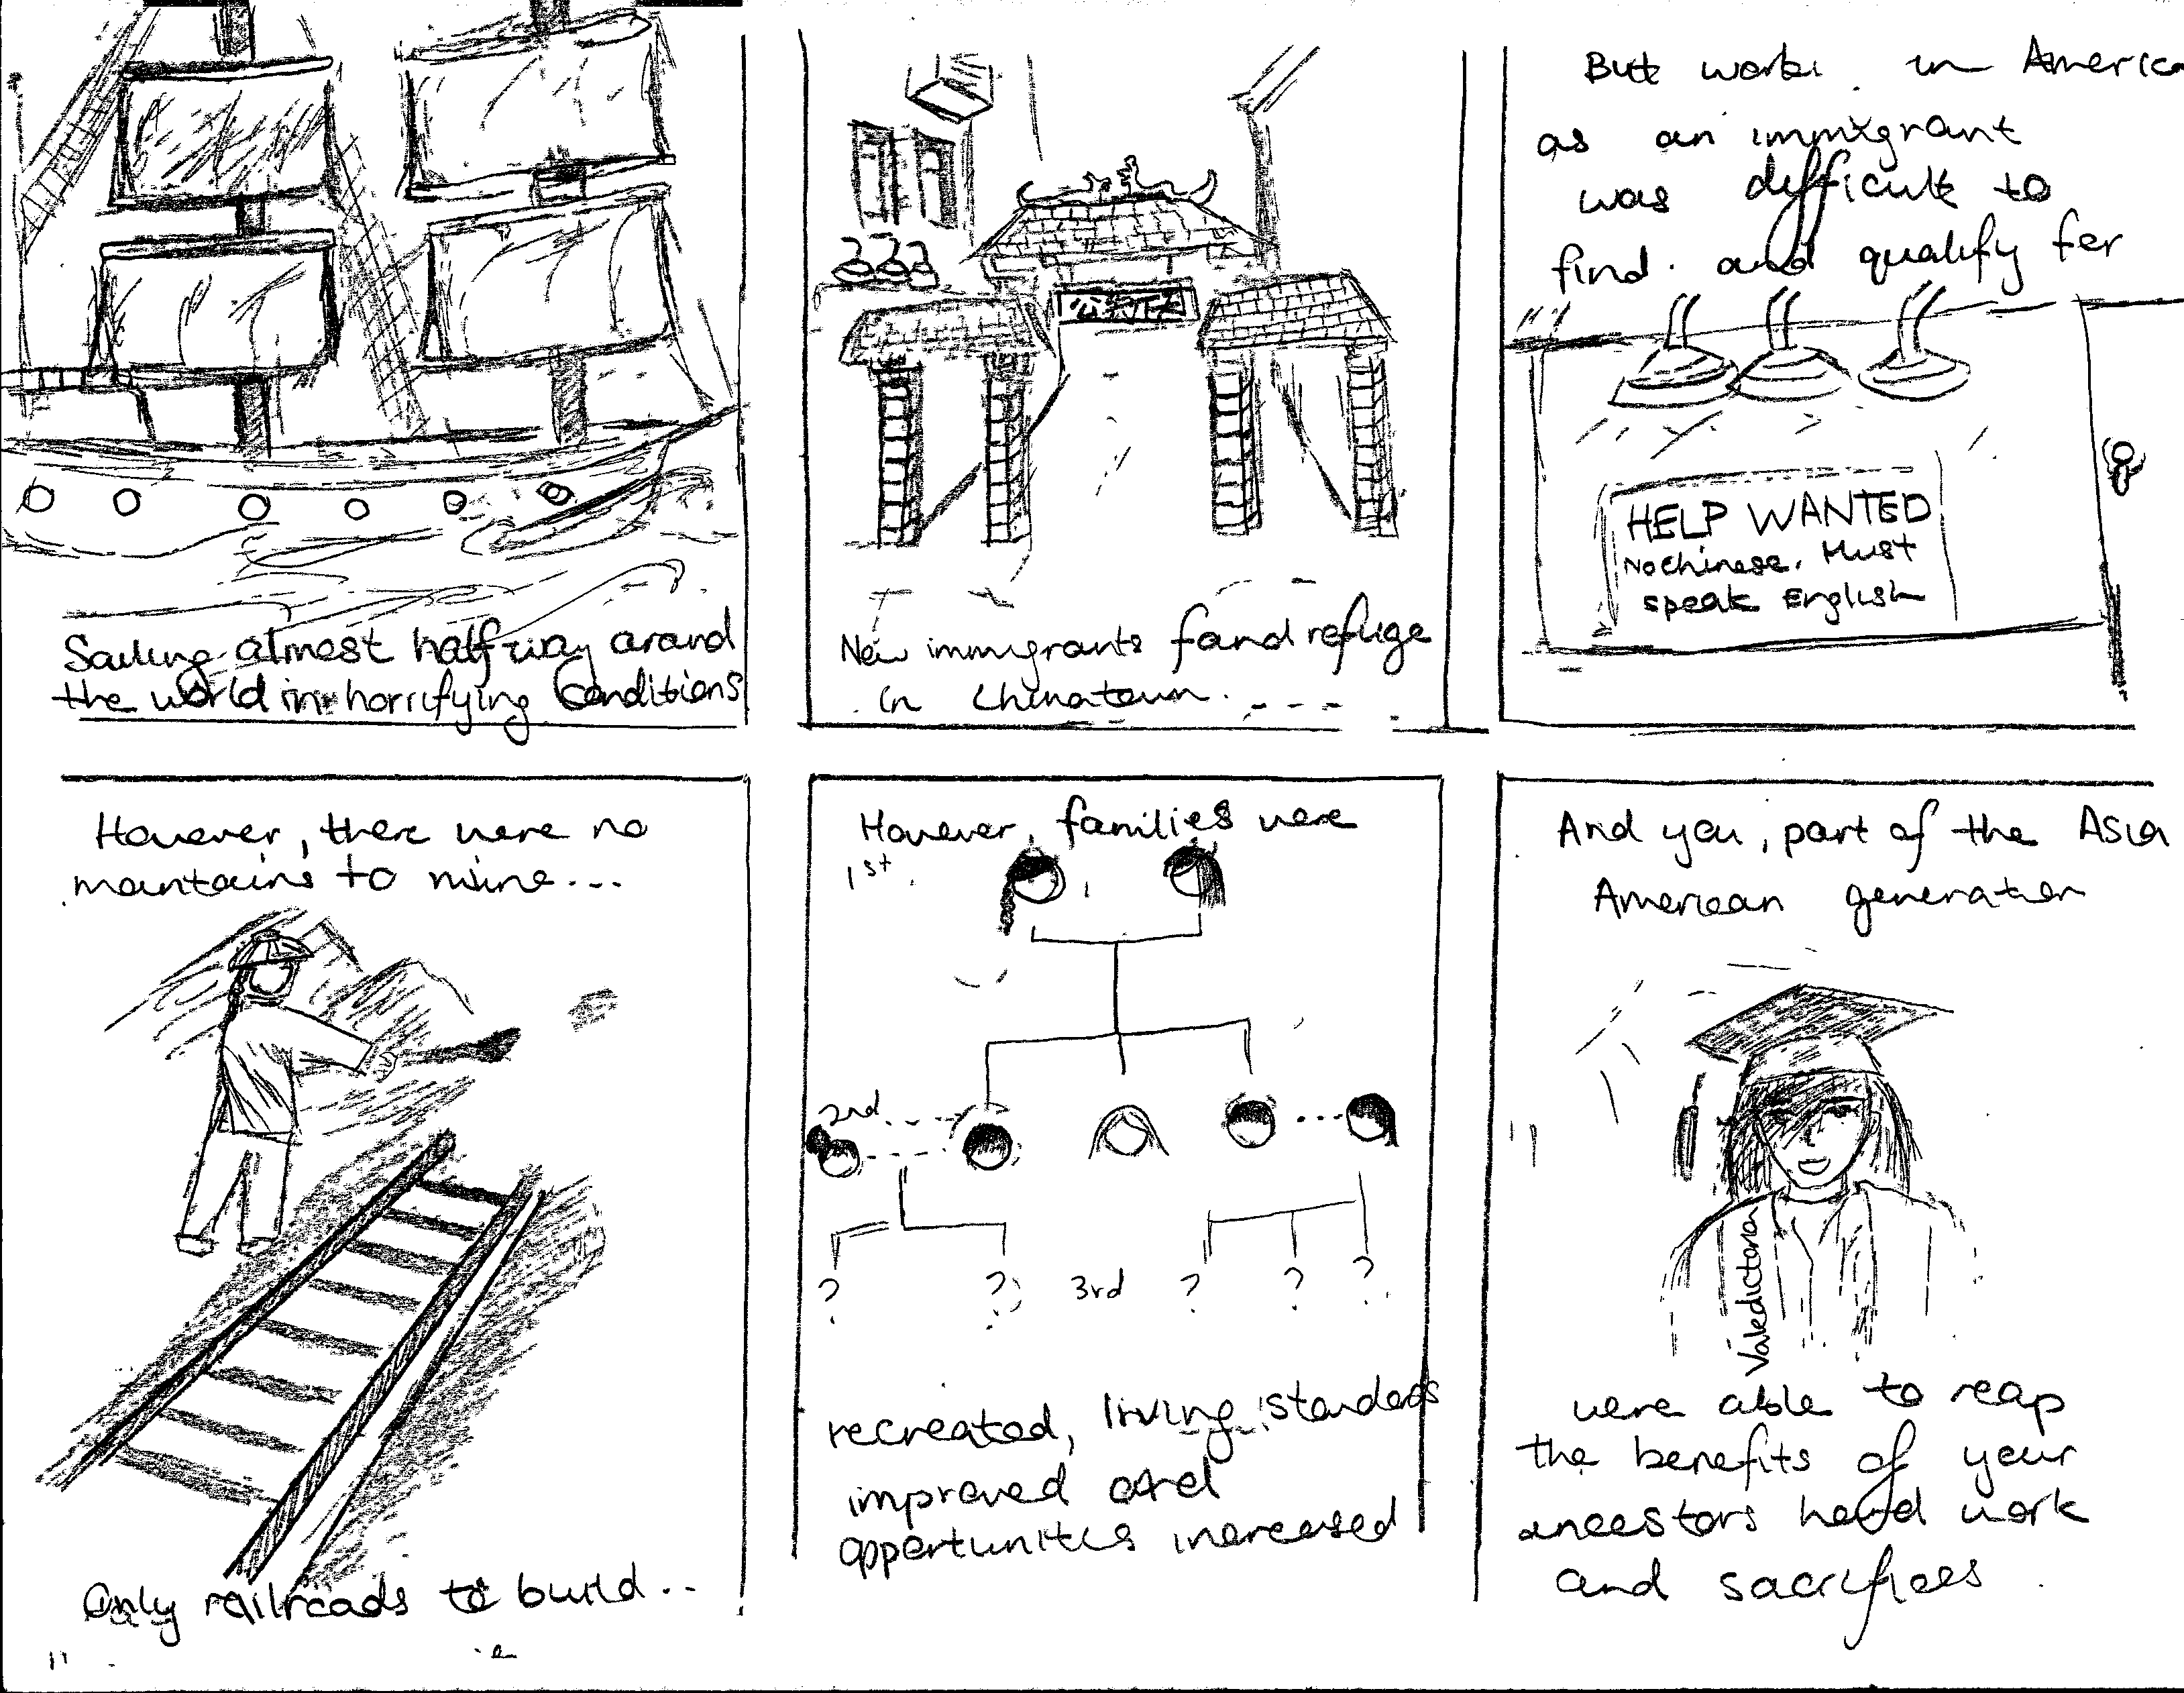 Sailing almost halfway around
the world in horrifying Conditions
New immigrants found refuge
in Chinatown.
But work in America
as an immigrant
was difficult to
find and qualify for
HELP WANTED
No Chinese. Must
speak English
However, there were no
mountains to mine...
Only railroads to build..
However, families were
1st
2nd
? ? 3rd ? ? ?
recreated, living standards
improved and
opportunities increased
And you, part of the Asia
American generation
Valedictorian
were able to reap
the benefits of your
ancestors hard work
and sacrifices